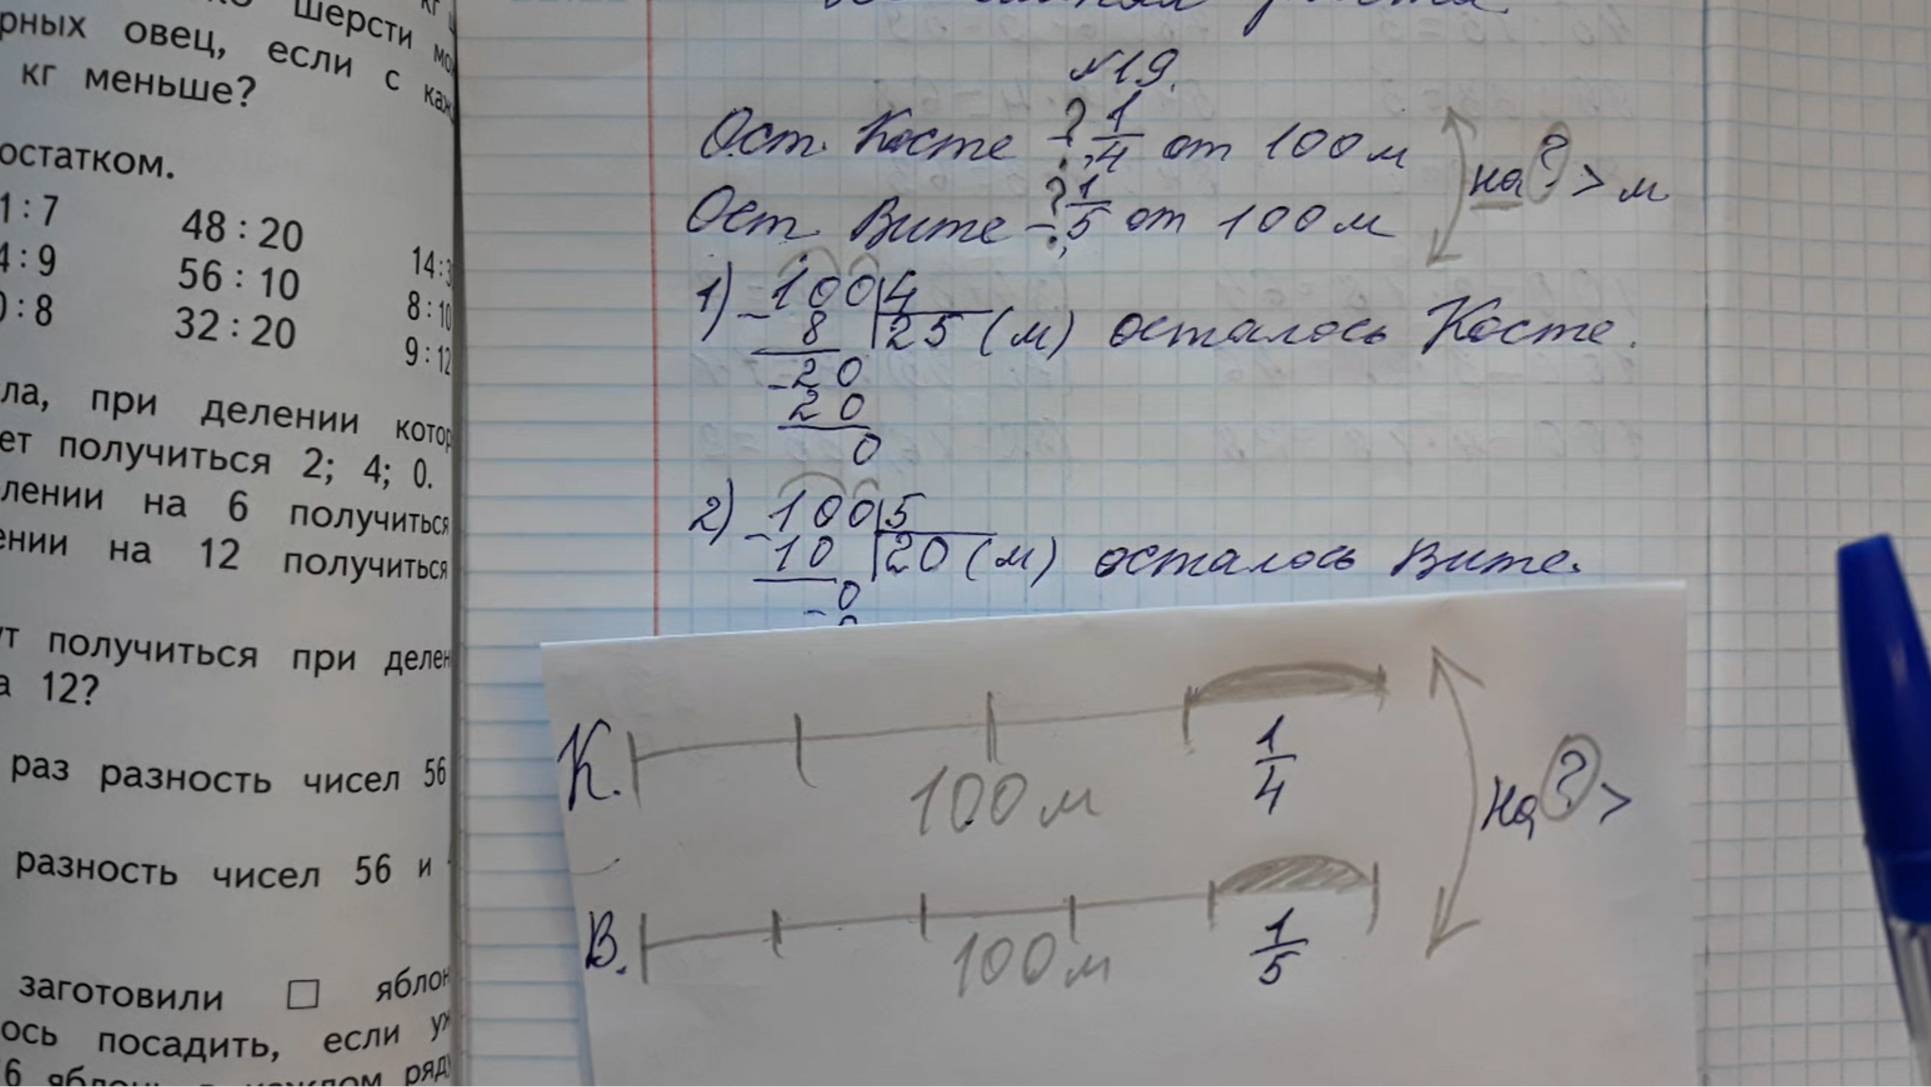 шерсти
рных овец, если с
кг меньше?
остатком.
1 : 7 48 : 20 14 : 3
4 : 9 56 : 10 8 : 10
0 : 8 32 : 20 9 : 12
ла, при делении котор
ет получиться 2; 4; 0.
лении на 6 получиться
ении на 12 получиться
ут получиться при делен
а 12?
раз разность чисел 56
разность чисел 56 и
заготовили □ яблон
ось посадить, если уж
6 ряд
№19.
Ост. Косте - ? 1/4 от 100 м
на ? > м
Ост. Вите - ? 1/5 от 100 м
1) 100 | 4
- 8 | 25 (м) осталось Косте.
- 20
20
0
2) 100 | 5
- 10 | 20 (м) осталось Вите.
- 0
К. 100 м 1/4
на ? >
В. 100 м 1/5